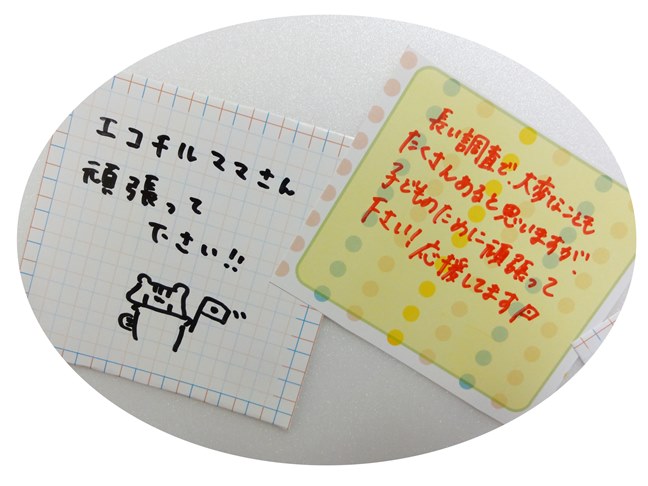 エコチルママさん
頑張って
下さい!!
長い調査で、大変なことも
たくさんあると思いますが、
子どものために頑張って
下さい!応援してます